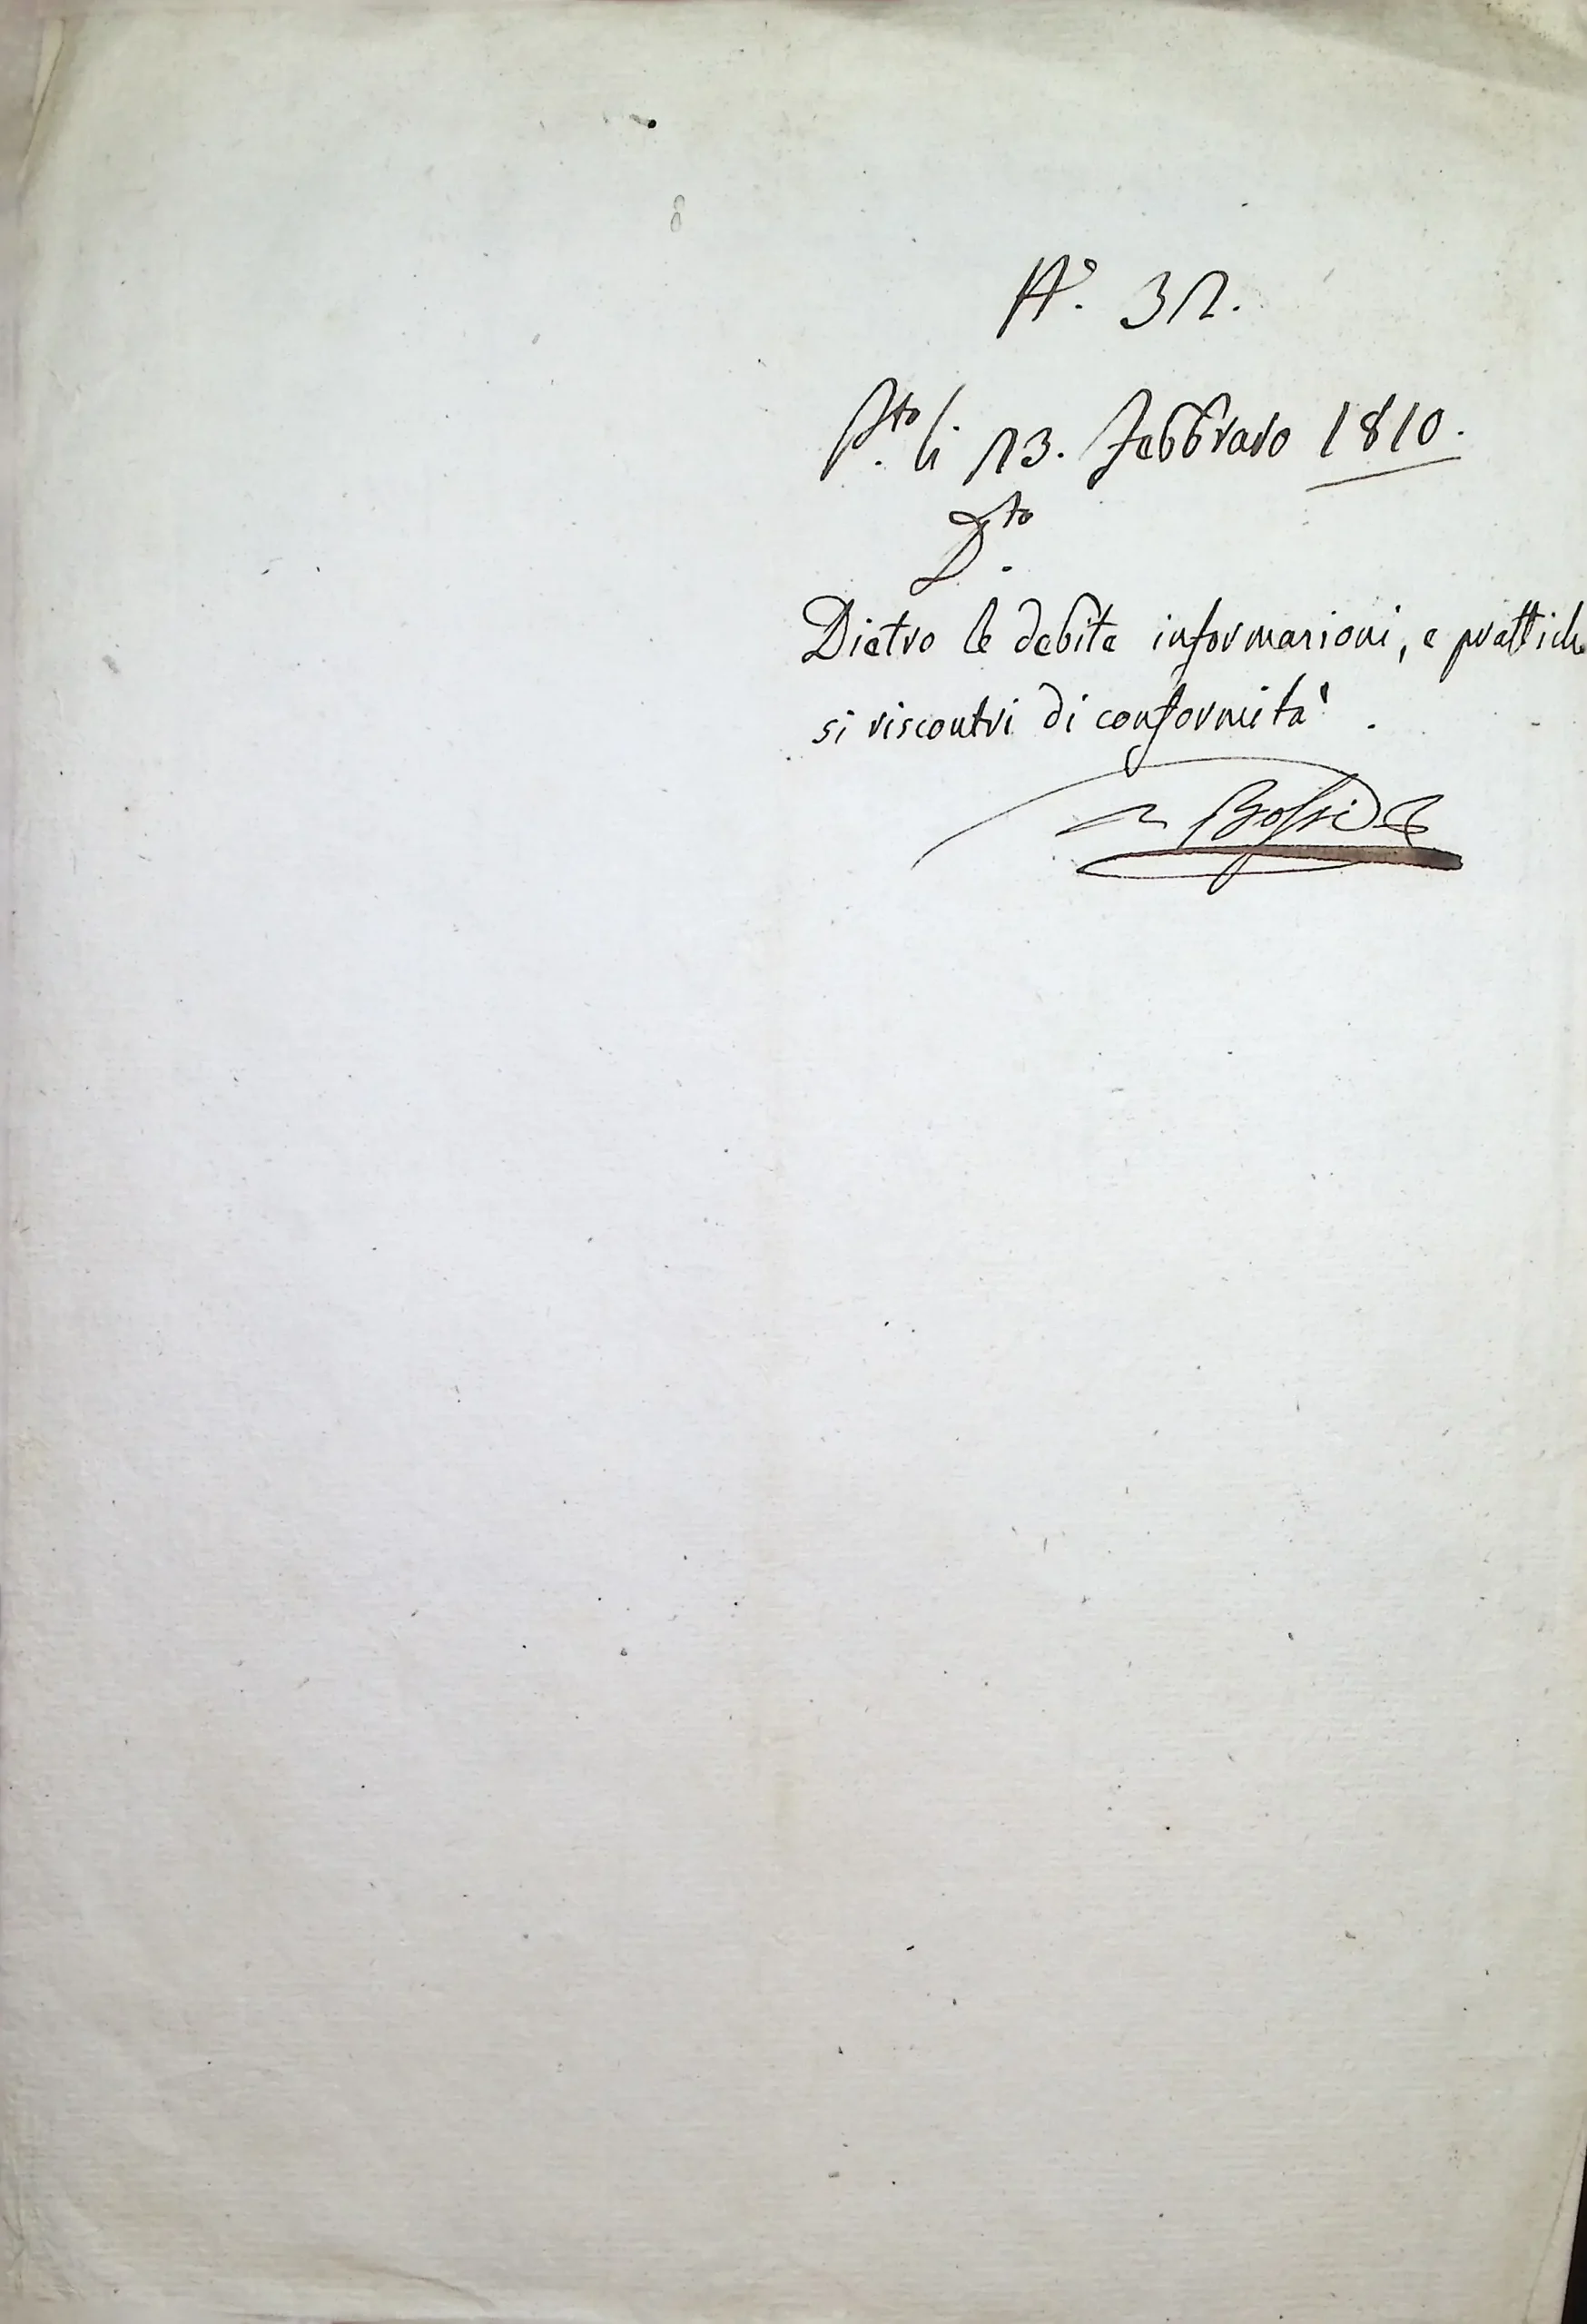 8
N.° 32.
P.to li 23. Febbraro 1810.
D.to
Dietro le debite informazioni, e prattich
si riscontri di conformità.
Bossi